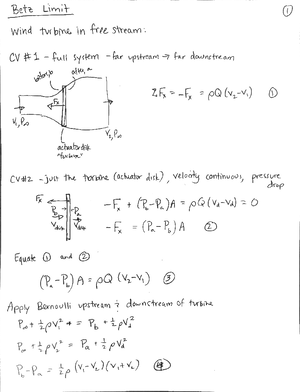 Betz Limit
①
Wind turbine in free stream:
CV #1 - full system - far upstream → far downstream
before, b
after, a
Fx
V₁, P∞
V₂, P∞
actuator disk
"turbine"
ΣFx = -Fx = ρQ (V₂ - V₁) ①
CV#2 - just the turbine (actuator disk), velocity continuous, pressure
drop
Fx
Pb
Pa
Vd
Vd
-Fx + (Pb - Pa)A = ρQ (Vd - Vd) = 0
-Fx = (Pa - Pb) A ②
Equate ① and ②
(Pa - Pb) A = ρQ (V₂ - V₁) ③
Apply Bernoulli upstream & downstream of turbine
P∞ + ½ρV₁² = Pb + ½ρVd²
P∞ + ½ρV₂² = Pa + ½ρVd²
Pb - Pa = ½ρ (V₁ - V₂)(V₁ + V₂) ④